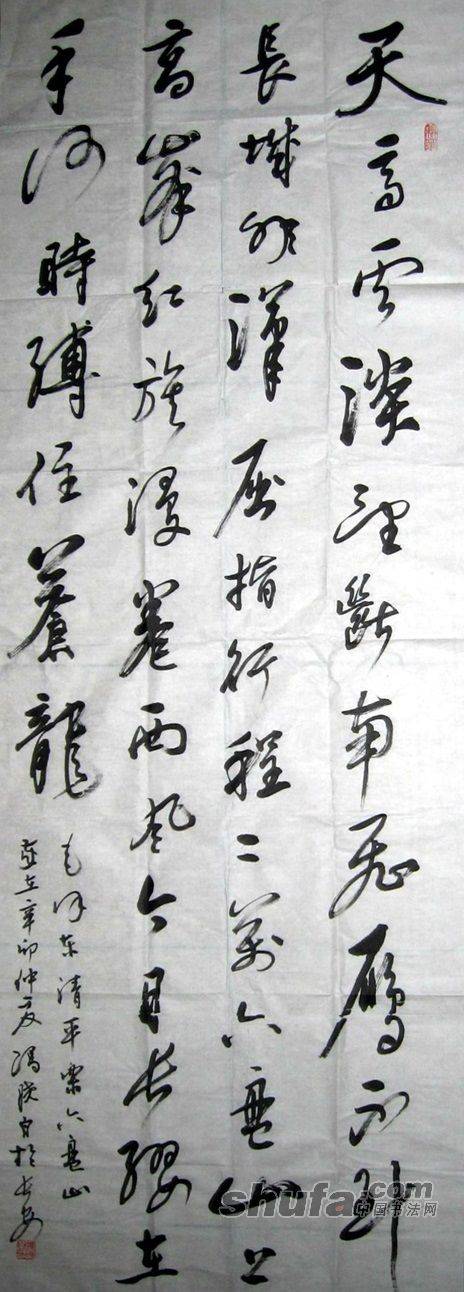 天高云淡望斷南飛雁不到
長城非漢屈指行程二萬六盤山上
高峯紅旗漫卷西風今日长纓在
手何時縛住蒼龍
毛泽东清平樂六盤山
歲在辛卯仲夏馮於长安
shufa.com
中国书法网